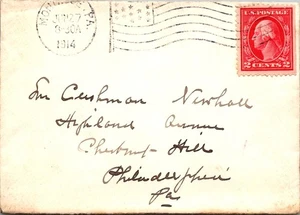 JUN 27
1914
U.S. POSTAGE
2 CENTS 2
Cushman Newhall
Highland Avenue
Chestnut Hill
Philadelphia
Pa